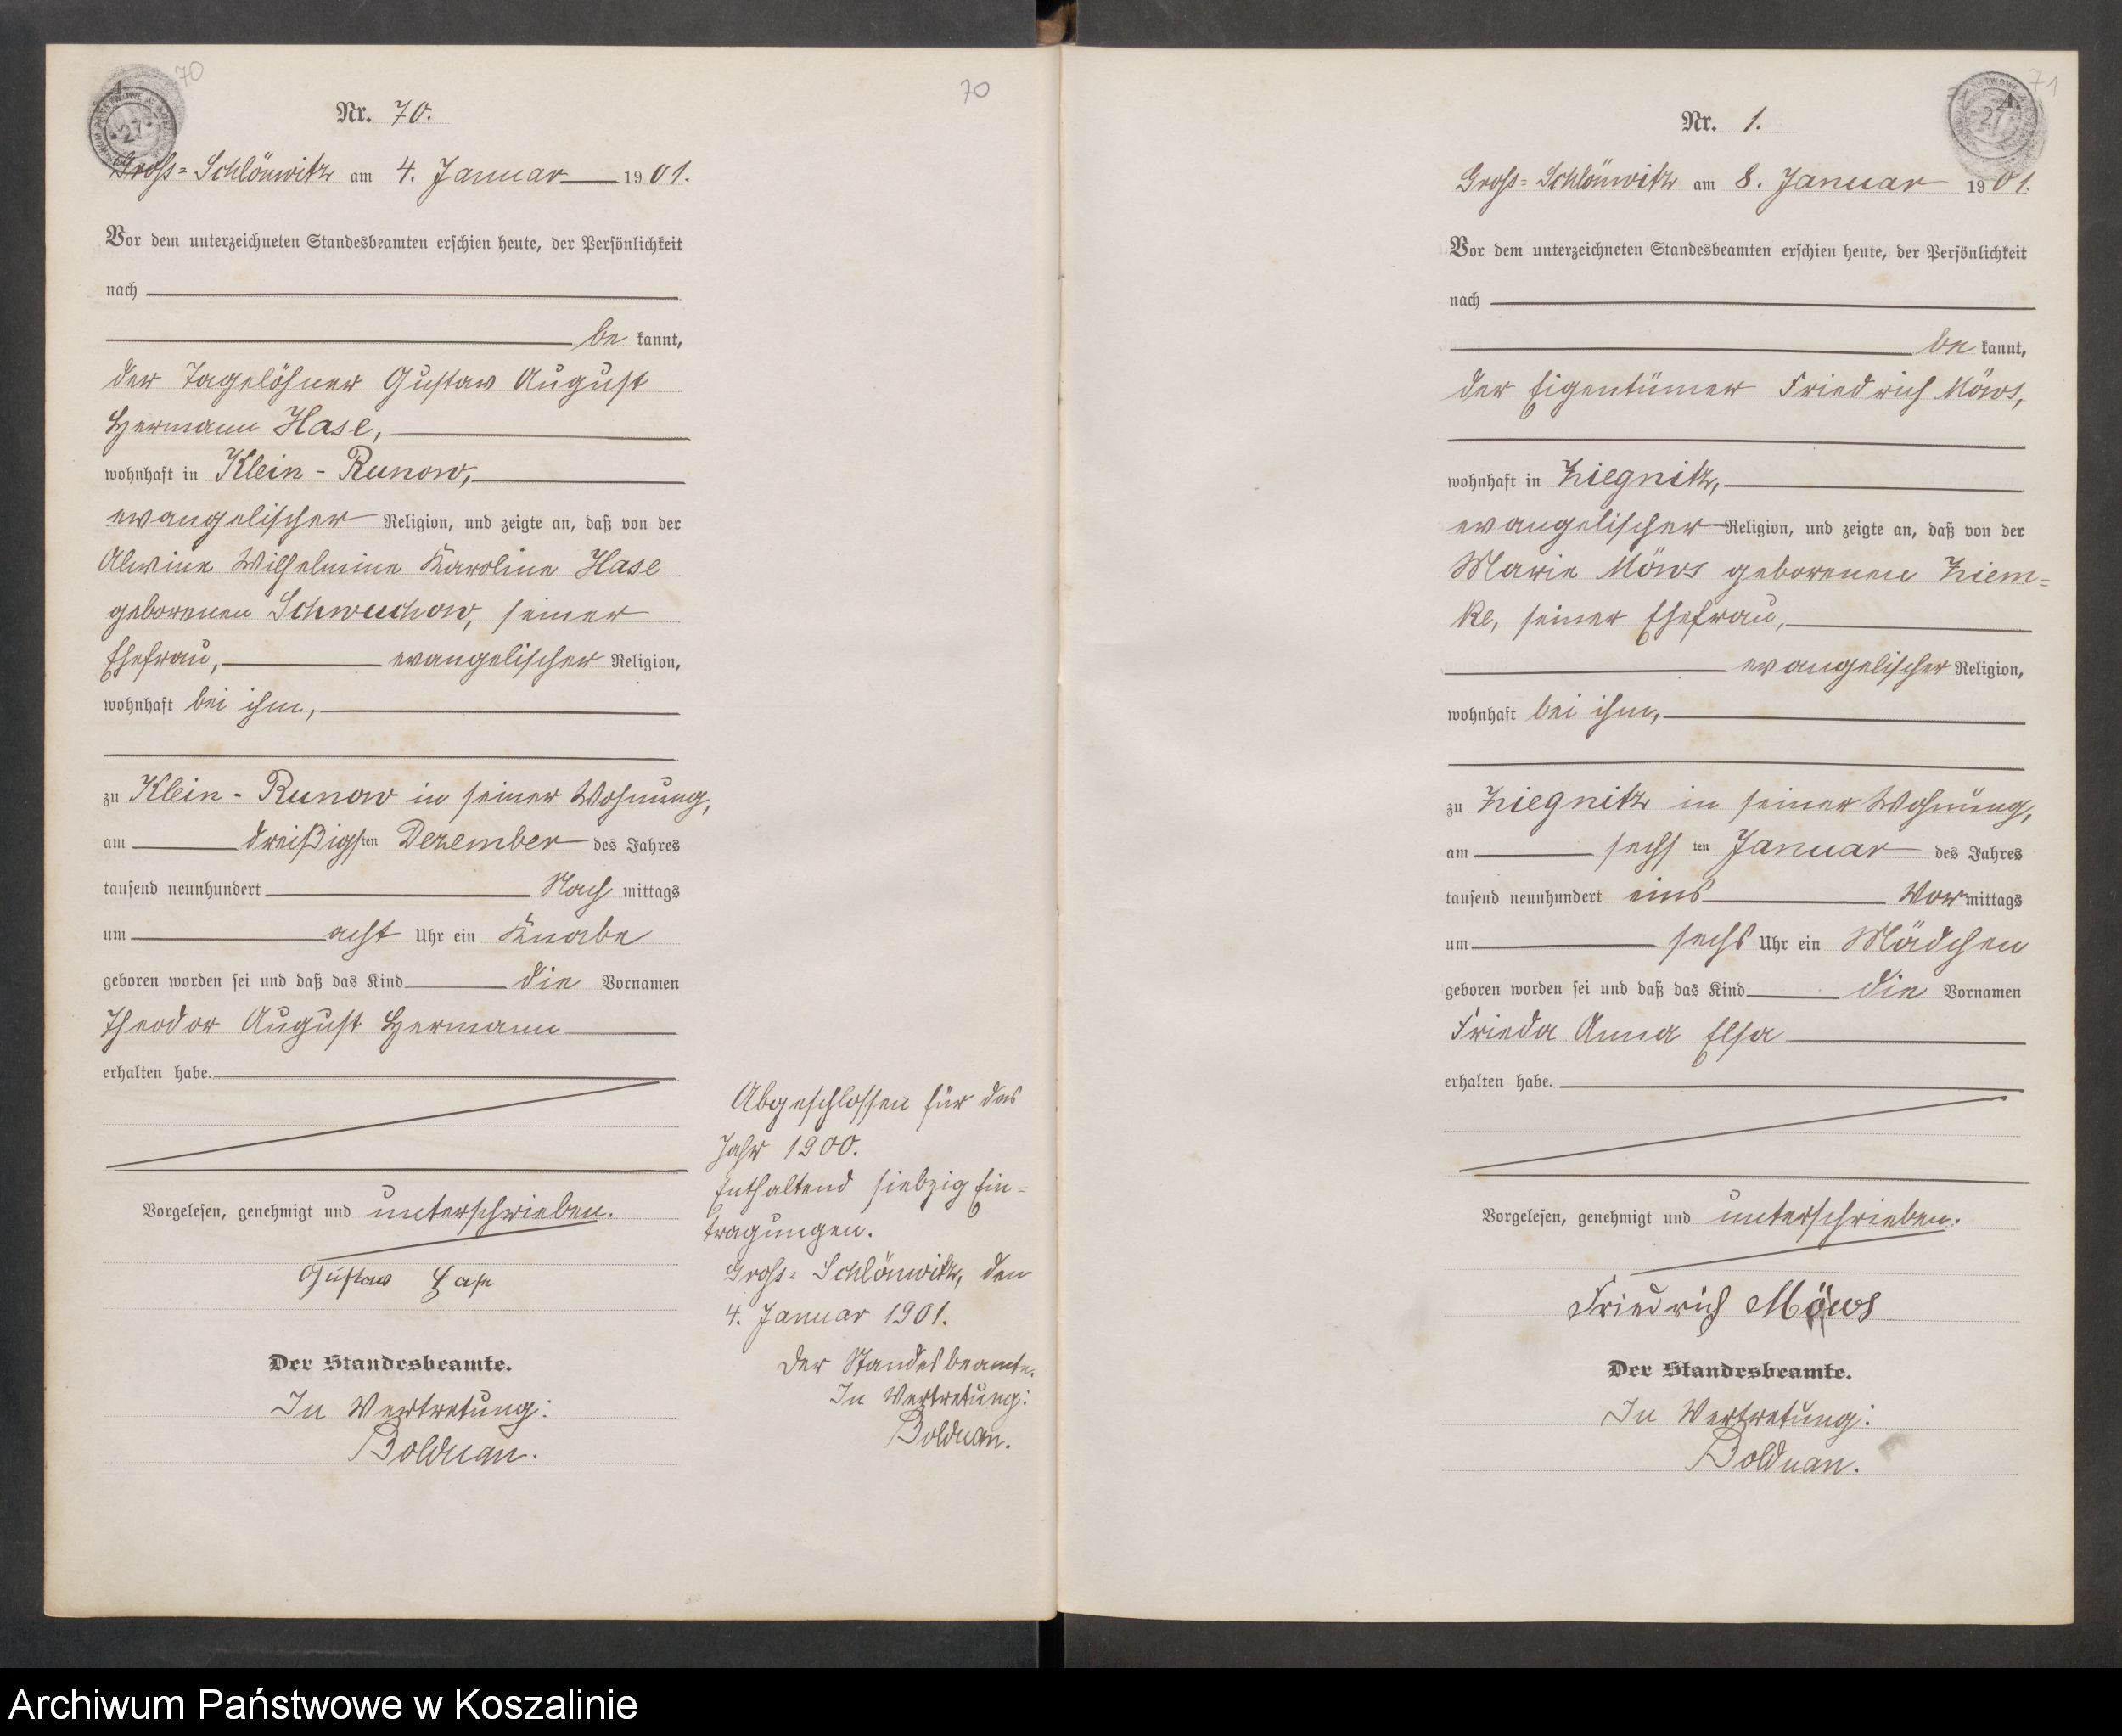 70
70
Nr. 70.
Gross-Schlönwitz am 4. Januar 1901.
Vor dem unterzeichneten Standesbeamten erschien heute, der Persönlichkeit
nach
be kannt,
der Tagelöhner Gustav August
Hermann Hase,
wohnhaft in Klein-Runow,
evangelischer Religion, und zeigte an, daß von der
Alwine Wilhelmine Karoline Hase
geborenen Schwuchow, seiner
Ehefrau, evangelischer Religion,
wohnhaft bei ihm,
zu Klein-Runow in seiner Wohnung,
am dreißigsten Dezember des Jahres
tausend neunhundert Nach mittags
um acht Uhr ein Knabe
geboren worden sei und daß das Kind die Vornamen
Theodor August Hermann
erhalten habe.
Vorgelesen, genehmigt und unterschrieben.
Gustav Hase
Der Standesbeamte.
In Vertretung:
Bolduan.
Abgeschlossen für das
Jahr 1900.
Enthaltend siebzig Ein-
tragungen.
Gross-Schlönwitz, den
4. Januar 1901.
Der Standesbeamte.
In Vertretung:
Bolduan.
71
Nr. 1.
Gross-Schlönwitz am 8. Januar 1901.
Vor dem unterzeichneten Standesbeamten erschien heute, der Persönlichkeit
nach
be kannt,
der Eigentümer Friedrich Möws,
wohnhaft in Ziegnitz,
evangelischer Religion, und zeigte an, daß von der
Marie Möws geborenen Ziem-
ke, seiner Ehefrau,
evangelischer Religion,
wohnhaft bei ihm,
zu Ziegnitz in seiner Wohnung,
am sechsten Januar des Jahres
tausend neunhundert eins Vormittags
um sechs Uhr ein Mädchen
geboren worden sei und daß das Kind die Vornamen
Frieda Anna Elsa
erhalten habe.
Vorgelesen, genehmigt und unterschrieben.
Friedrich Möws
Der Standesbeamte.
In Vertretung:
Bolduan.
Archiwum Państwowe w Koszalinie